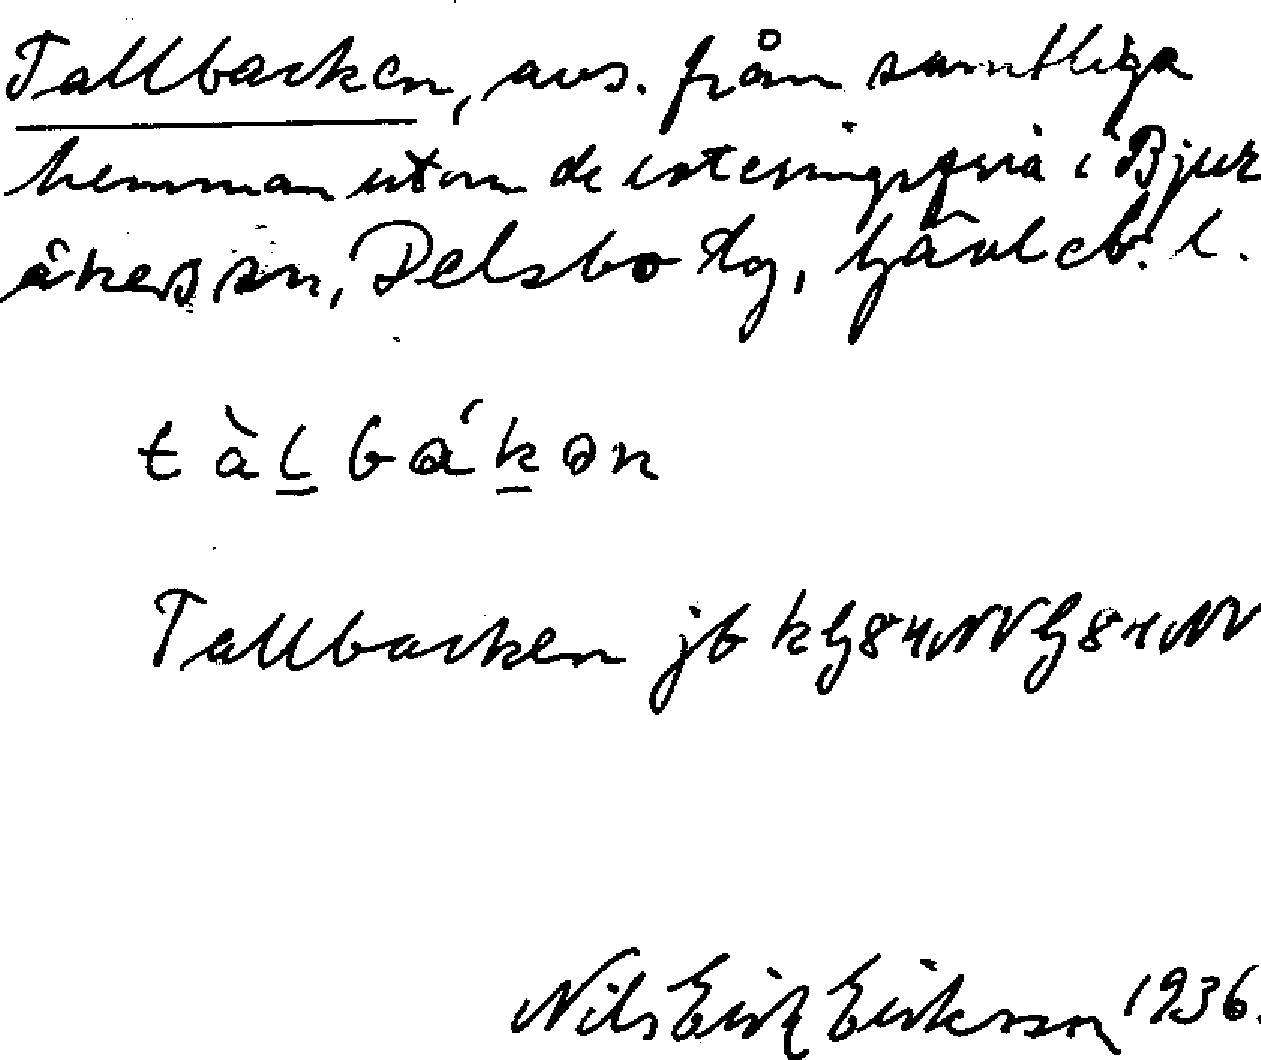 Tallbacken, avs. från samtliga
hemman utom de rotering­sfria i Bjur
åkers sn, Delsbo tg, Gävleb. l.
tàlbákən
Tallbacken jb k G 84 NV G 84 NV
Nils Erik Eriksson 1936.